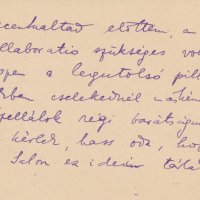 centualtad előttem, an
llaboratio szükséges vo
pen a legutolsó pill
ben cselekednél nekem
pellálok régi barátságun
kérlek, hass oda, ho
Salon ez idein tárla